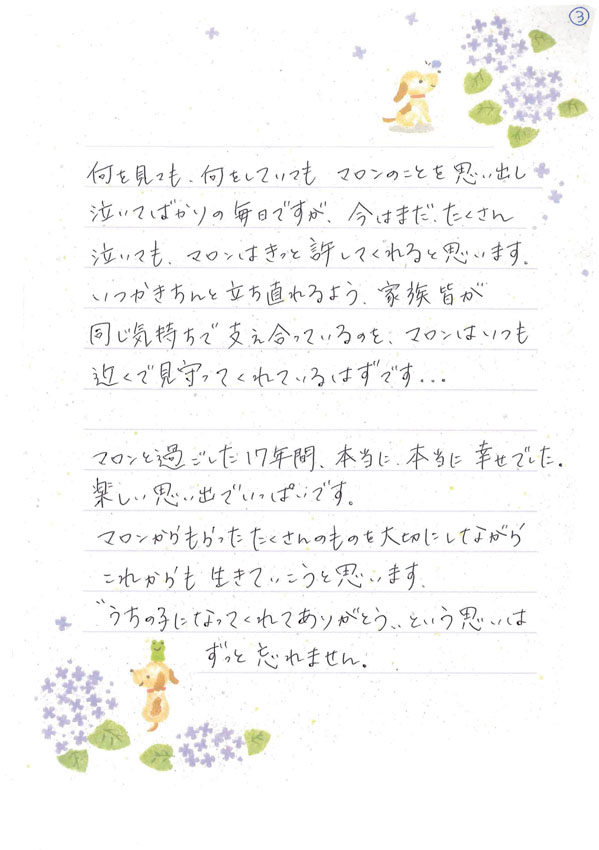 ③
何を見ても、何をしていても マロンのことを思い出し
泣いてばかりの毎日ですが、今はまだ、たくさん
泣いても、マロンはきっと許してくれると思います。
いつかきちんと立ち直れるよう、家族皆が
同じ気持ちで支え合っているのを、マロンはいつも
近くで見守ってくれているはずです...
マロンと過ごした17年間、本当に、本当に幸せでした。
楽しい思い出でいっぱいです。
マロンからもらったたくさんのものを大切にしながら
これからも生きていこうと思います。
〝うちの子になってくれてありがとう〟という思いは
ずっと忘れません。